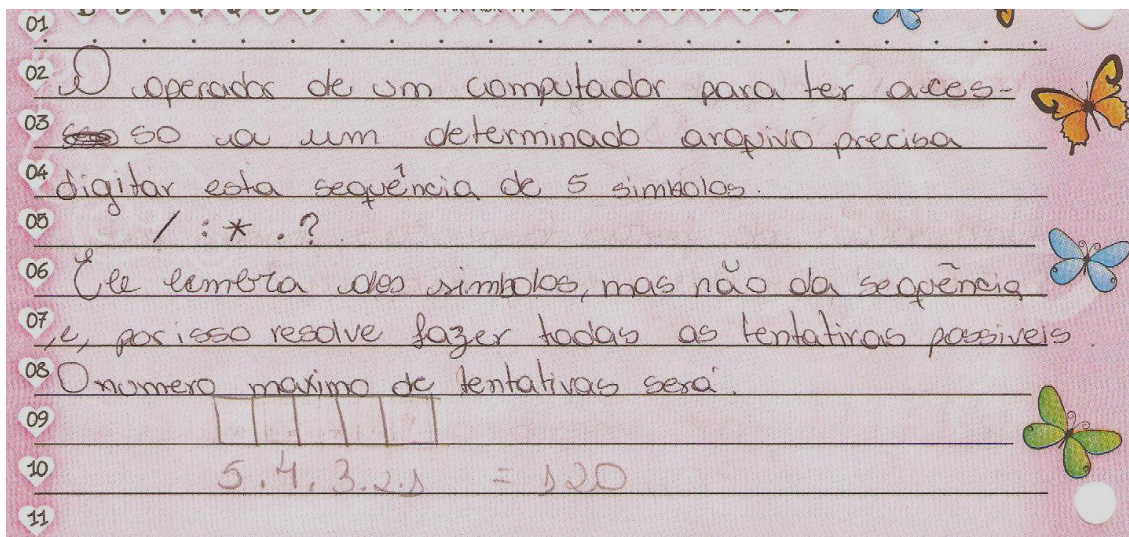 01
02 O operador de um computador para ter aces-
03 so a um determinado arquivo precisa
04 digitar esta sequência de 5 simbolos.
05 / : * . ?
06 Ele lembra dos simbolos, mas não da sequência
07 e, por isso resolve fazer todas as tentativas possiveis.
08 O numero maximo de tentativas será
09
10 5.4.3.2.1 = 120
11